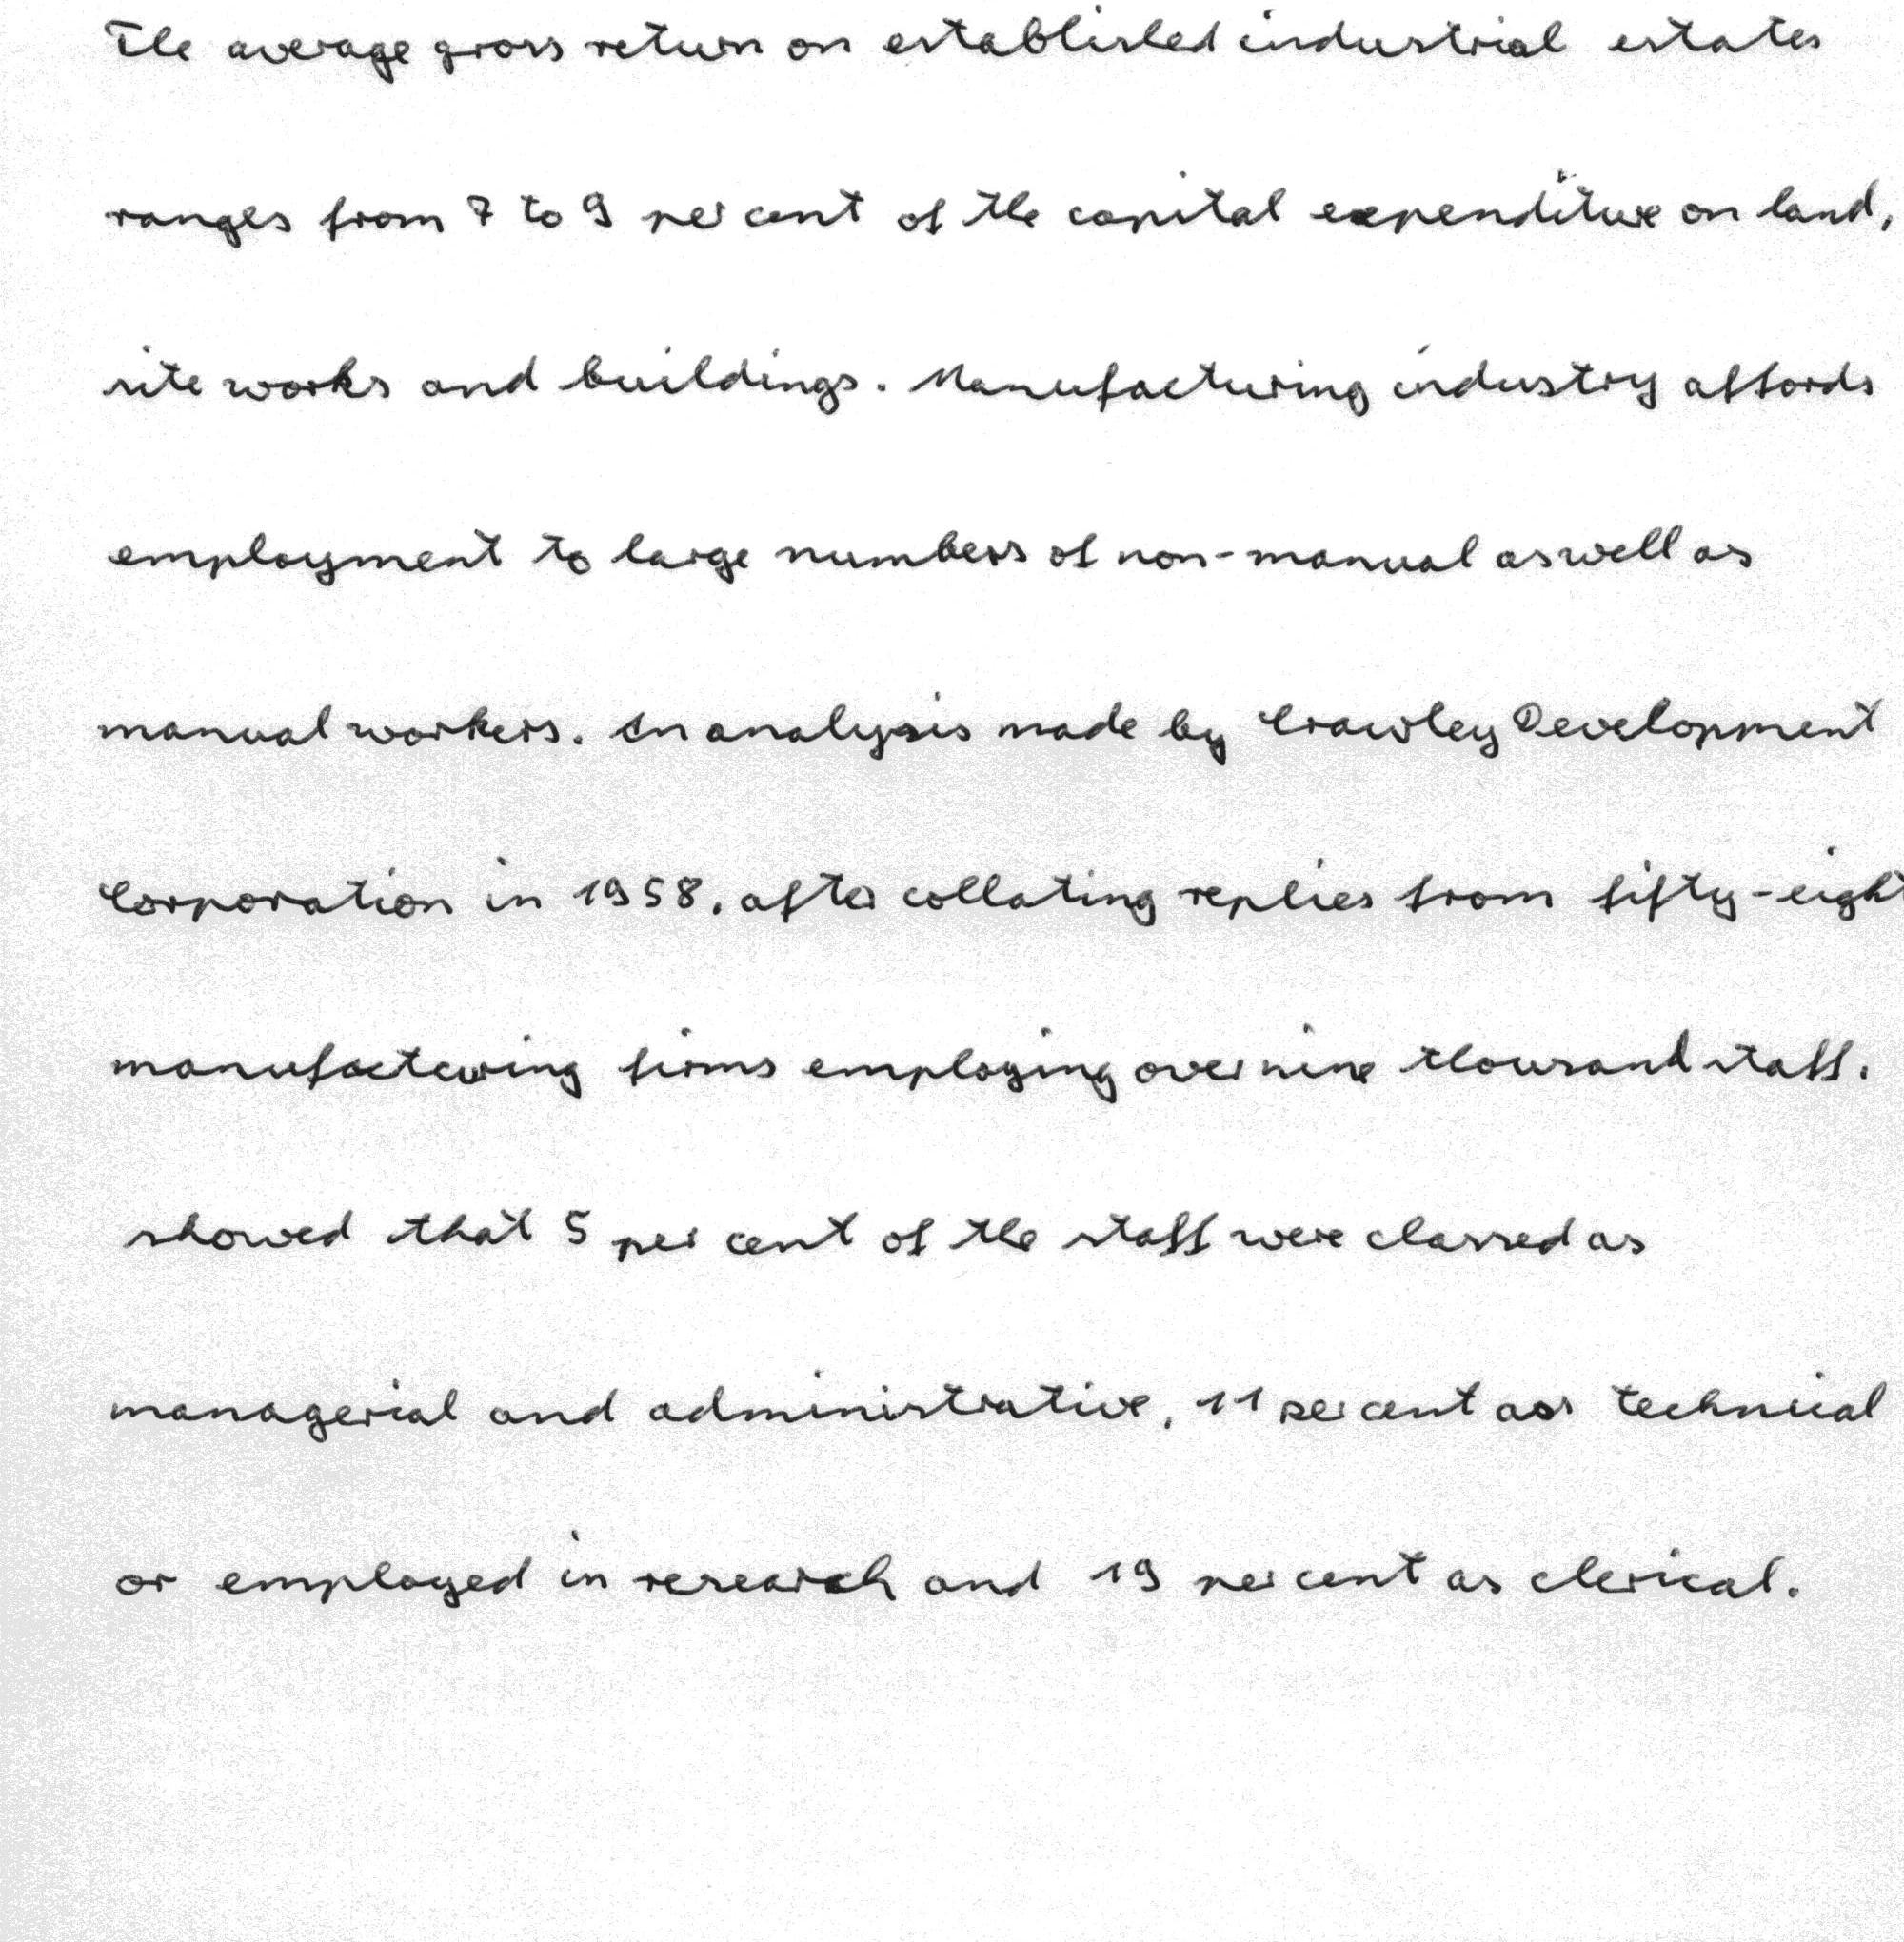 The average gross return on established industrial estates
ranges from 7 to 9 per cent of the capital expenditure on land,
site works and buildings. Manufacturing industry affords
employment to large numbers of non-manual as well as
manual workers. An analysis made by Crawley Development
Corporation in 1958, after collating replies from fifty-eight
manufacturing firms employing over nine thousand staff.
showed that 5 per cent of the staff were classed as
managerial and administrative, 11 per cent as technical
or employed in research and 19 per cent as clerical.